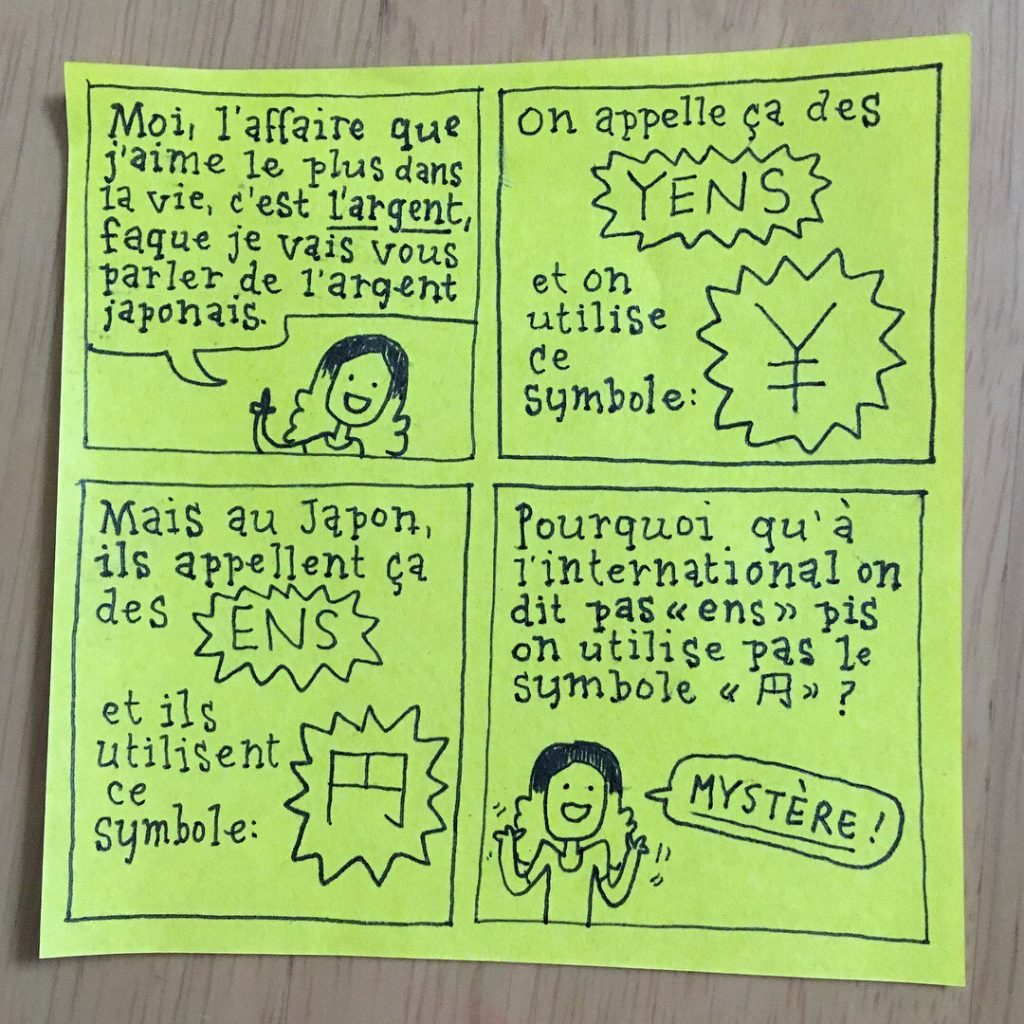 Moi, l'affaire que
j'aime le plus dans
la vie, c'est l'argent,
faque je vais vous
parler de l'argent
japonais.
on appelle ça des
YENS
et on
utilise
ce
symbole:
¥
Mais au Japon,
ils appellent ça
des ENS
et ils
utilisent
ce
symbole:
円
Pourquoi qu'à
l'international on
dit pas « ens » pis
on utilise pas le
symbole « 円 » ?
MYSTÈRE !